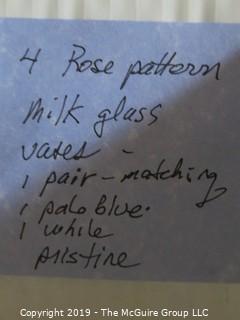 4 Rose pattern
Milk glass
vases -
1 pair - matching
1 palo blue.
1 while
pristine
Copyright 2019 - The McGuire Group LLC